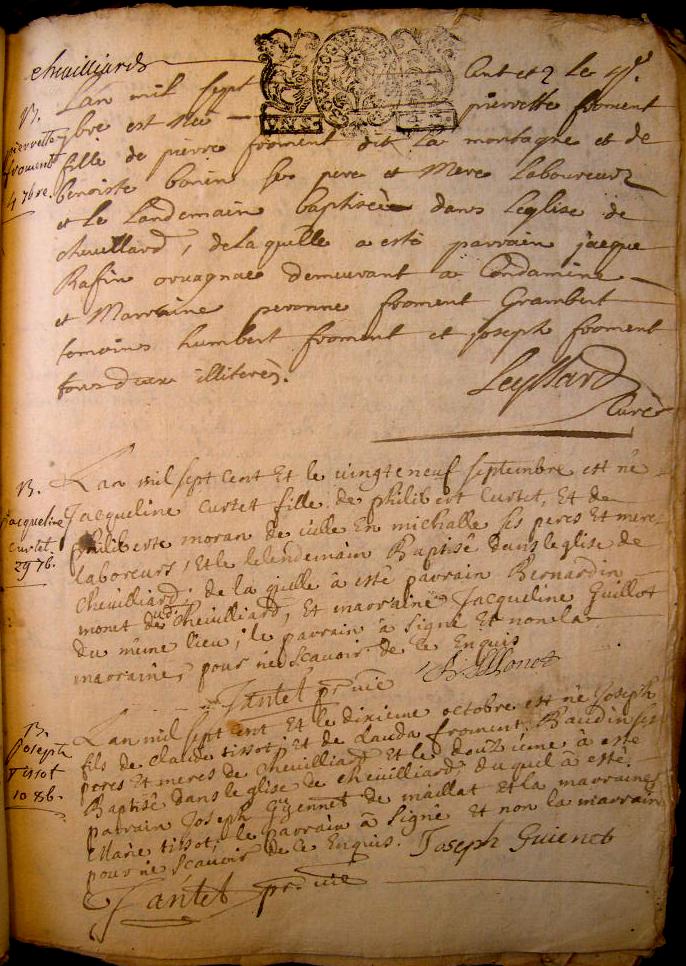 cheuilliard
L'an mil sept cent et 2 le 4e.
B.
pierrette
froment
4 7bre.
7bre est née pierrette froment
fille de pierre froment dit La montagne et de
benoiste bonin ses pere et Mere Laboureurs
et le Landemain baptiseè dans Leglise de
cheuillard, delaquille a esté parrain jacque
Rafin demeurant a Condamine
et Marraine peronne froment Grambert
temoins humbert froment et joseph froment
tous deux illiterès.
Leyssard
Curé
B.
jacqueline
curtet
29 7b.
L'an mil sept Cent Et le vingt neuf septembre est né
Jacqueline Curtet fille de philibert Curtet, Et de
philiberte moran de ville En michalle ses peres Et meres
laboreurs, Et le lelendemain Baptisé dans leglise de
Cheuilliard; de la qielle à esté parrain Bernardin
monet du dit Cheuilliard, Et marraine Jacqueline Guillot
du même lieu; le parrain à signé Et non la
marraine, pour ne sçauoir de ce Enquis
Tantet pr vic B. Monet
B.
Joseph
Tissot
10 8b.
L'an mil sept cent Et le dixieme octobre est né Joseph
fils de claude tissot, Et de Clauda froment Baudin ses
peres Et meres de cheuilliard, Et le douzieme à esté
Baptisé dans leglise de cheuilliard, du quil à esté
parrain Joseph Guiennet de maillat Et la marraine
Marie tissot, le parrain à signé Et non la marraine
pour ne sçauoir de ce Enquis. Joseph Guienet
Tantet pr vic